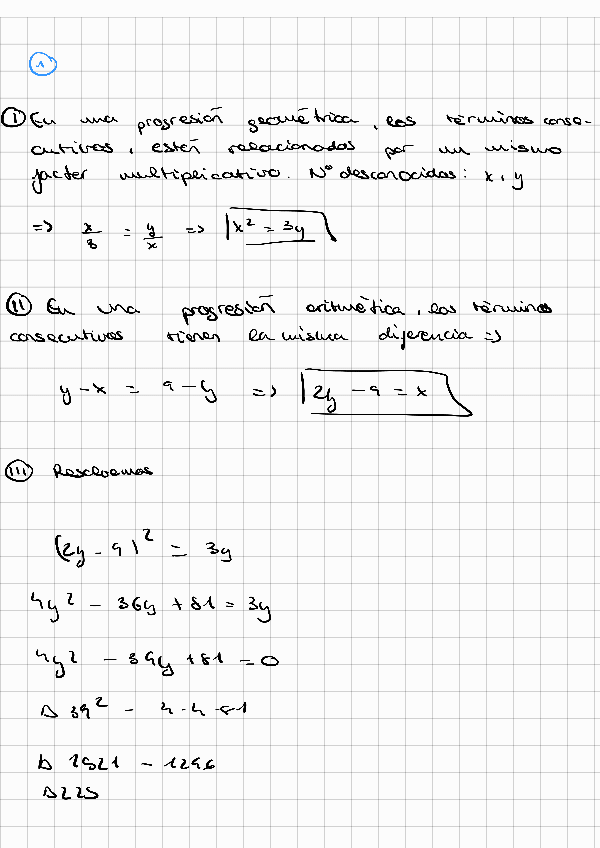 1
I En una progresión geométrica, los términos conse-
cutivos, están relacionados por un mismo
factor multiplicativo. Nº desconocidos: x, y
=> x/3 = y/x => x² = 3y
II En una progresión aritmética, los términos
consecutivos tienen la misma diferencia =>
y - x = 9 - y => 2y - 9 = x
III Resolvemos
(2y - 9)² = 3y
4y² - 36y + 81 = 3y
4y² - 39y + 81 = 0
Δ 39² - 4·4·81
Δ 1521 - 1296
Δ 225